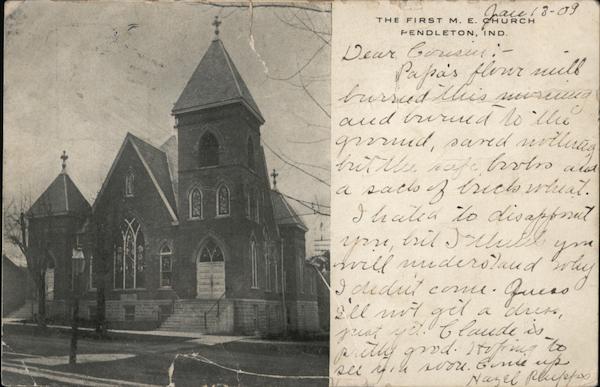 Jan 13-09
THE FIRST M. E. CHURCH
PENDLETON, IND.
Dear Cousin:-
Papa's flour mill
burned this morning
and burned to the
ground, saved nothing
but the safe, books and
a sack of buckwheat.
I hated to disappoint
you, but I think you
will understand why
I didn't come. Guess
I'll not get a dress,
just yet. Claude is
pretty good. Hoping to
see you soon. Come up
Hazel Phipps